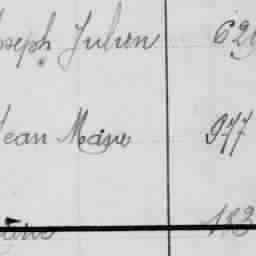 oseph Julien 629
Jean Marie 977
183